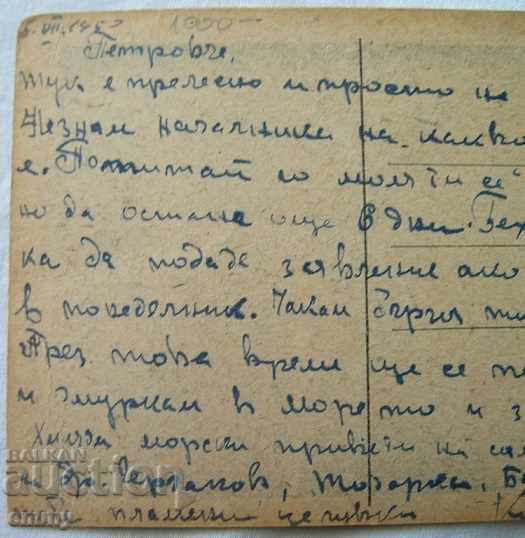 1950
Петровче,
тук е прелесно и просто не
Незнам началника на какво
е. Попитай го молъ ти се
но да остана още 6 дни.
ка да подада заявление ако
в понеделник. Чакам бърз
През това време ще се
и гмуркам в морето и з
Хиляда морски привети на
и др. Тотарки,
пламенни целувки
BALKAN
auction